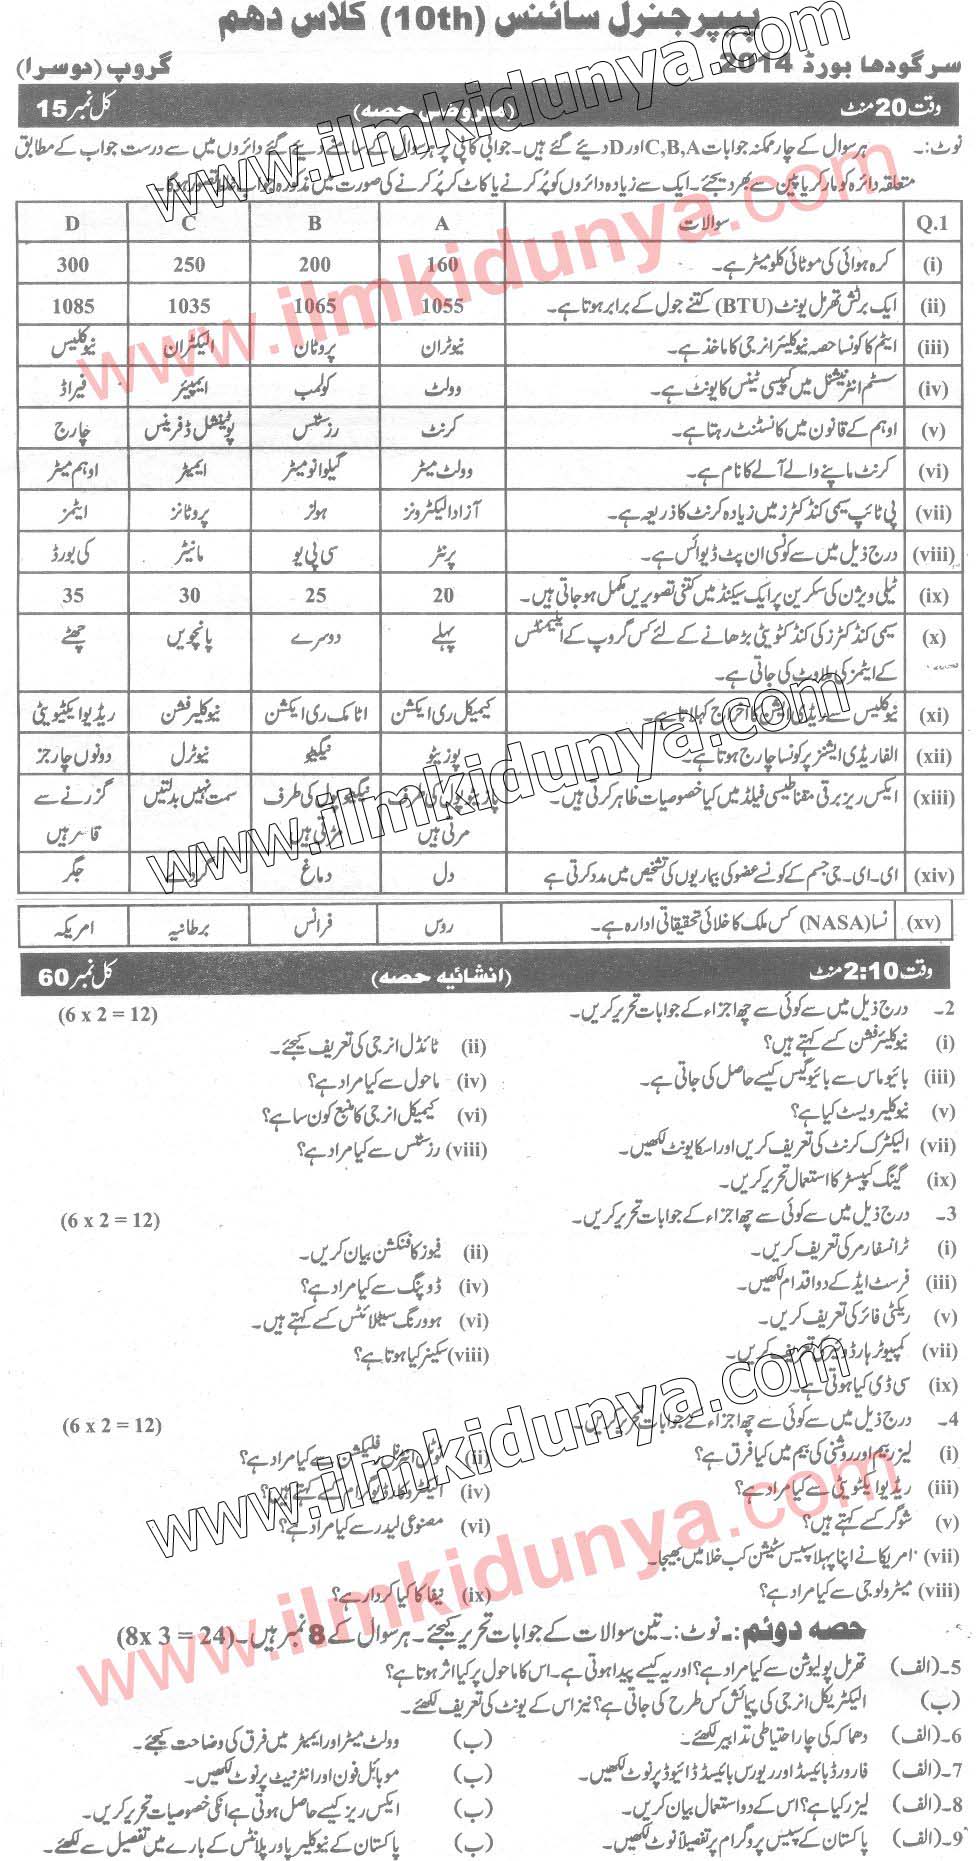 پیپر جنرل سائنس (10th) کلاس دهم
سرگودھا بورڈ 2014 گروپ (دوسرا)
وقت 20 منٹ (معروضی حصہ) کل نمبر 15
نوٹ:۔ ہر سوال کے چار ممکنہ جوابات C,B,A اور D دیئے گئے ہیں۔ جوابی کاپی پر ہر سوال کے سامنے دیئے گئے دائروں میں سے درست جواب کے مطابق
متعلقہ دائرہ کو مارکر یا پین سے بھر دیجئے۔ ایک سے زیادہ دائروں کو پُر کرنے یا کاٹ کر پُر کرنے کی صورت میں مذکورہ جواب غلط تصور ہوگا۔
Q.1 سوالات A B C D
(i) کرہ ہوائی کی موٹائی کلومیٹر ہے۔ 160 200 250 300
(ii) ایک برٹش تھرمل یونٹ (BTU) کتنے جول کے برابر ہوتا ہے۔ 1055 1065 1035 1085
(iii) ایٹم کا کونسا حصہ نیوکلیئر انرجی کا ماخذ ہے۔ نیوٹران پروٹان الیکٹران نیوکلیس
(iv) سسٹم انٹرنیشنل میں کپیسی ٹینس کا یونٹ ہے۔ وولٹ کولمب ایمپیئر فیراڈ
(v) اوہم کے قانون میں کانسٹنٹ رہتا ہے۔ کرنٹ رزسٹنس پوٹینشل ڈفرینس چارج
(vi) کرنٹ ماپنے والے آلے کا نام ہے۔ وولٹ میٹر گیلوانومیٹر ایمیٹر اوہم میٹر
(vii) پی ٹائپ سیمی کنڈکٹرز میں زیادہ کرنٹ کا ذریعہ ہے۔ آزاد الیکٹرونز ہولز پروٹانز ایٹمز
(viii) درج ذیل میں سے کونسی ان پٹ ڈیوائس ہے۔ پرنٹر سی پی یو مانیٹر کی بورڈ
(ix) ٹیلی ویژن کی سکرین پر ایک سیکنڈ میں کتنی تصویریں مکمل ہو جاتی ہیں۔ 20 25 30 35
(x) سیمی کنڈکٹرز کی کنڈکٹویٹی بڑھانے کے لئے کس گروپ کے ایلیمنٹس پہلے دوسرے پانچویں چھٹے
کے ایٹمز کی ملاوٹ کی جاتی ہے۔
(xi) نیوکلیس سے ریڈی ایشن کا اخراج کہلاتا ہے۔ کیمیکل ری ایکشن اٹامک ری ایکشن نیوکلیر فشن ریڈیو ایکٹیویٹی
(xii) الفا ریڈی ایشنز پر کونسا چارج ہوتا ہے۔ پوزیٹو نیگیٹو نیوٹرل دونوں چارجز
(xiii) ایکس ریز برقی مقناطیسی فیلڈ میں کیا خصوصیات ظاہر کرتی ہیں۔ پازیٹو پول کی طرف نیگیٹو پول کی طرف سمت نہیں بدلتیں گزرنے سے
مڑتی ہیں مڑتی ہیں قاصر ہیں
(xiv) ای۔ ای۔ جی جسم کے کونسے عضو کی بیماریوں کی تشخیص میں مدد کرتی ہے دل دماغ گردے جگر
(xv) نسا (NASA) کس ملک کا خلائی تحقیقاتی ادارہ ہے۔ روس فرانس برطانیہ امریکہ
وقت 2:10 منٹ (انشائیہ حصہ) کل نمبر 60
2۔ درج ذیل میں سے کوئی سے چھ اجزاء کے جوابات تحریر کریں۔ (6 x 2 = 12)
(i) نیوکلیئر فشن کسے کہتے ہیں؟ (ii) ٹائڈل انرجی کی تعریف کیجئے۔
(iii) بائیو ماس سے بائیو گیس کیسے حاصل کی جاتی ہے۔ (iv) ماحول سے کیا مراد ہے؟
(v) نیوکلیر ویسٹ کیا ہے؟ (vi) کیمیکل انرجی کا منبع کون سا ہے؟
(vii) الیکٹرک کرنٹ کی تعریف کریں اور اسکا یونٹ لکھیں۔ (viii) رزسٹنس سے کیا مراد ہے؟
(ix) گینگ کپیسٹر کا استعمال تحریر کریں۔
3۔ درج ذیل میں سے کوئی سے چھ اجزاء کے جوابات تحریر کریں۔ (6 x 2 = 12)
(i) ٹرانسفارمر کی تعریف کریں۔ (ii) فیوز کا فنکشن بیان کریں۔
(iii) فرسٹ ایڈ کے دو اقدام لکھیں۔ (iv) ڈوپنگ سے کیا مراد ہے؟
(v) ریکٹی فائر کی تعریف کریں۔ (vi) ہوورنگ سیٹلائٹس کسے کہتے ہیں۔
(vii) کمپیوٹر ہارڈ وئیر کی تعریف کریں۔ (viii) سکینر کیا ہوتا ہے؟
(ix) سی ڈی کیا ہوتی ہے۔
4۔ درج ذیل میں سے کوئی سے چھ اجزاء کے جوابات تحریر کریں۔ (6 x 2 = 12)
(i) لیزر بیم اور روشنی کی بیم میں کیا فرق ہے؟ (ii) ٹوٹل انٹرنل فلیکشن سے کیا مراد ہے؟
(iii) ریڈیو ایکٹیویٹی سے کیا مراد ہے؟ (iv) الیکٹروکارڈیوگرام کسے کہتے ہیں؟
(v) شوگر کسے کہتے ہیں؟ (vi) مصنوعی لیدر سے کیا مراد ہے؟
(vii) امریکا نے اپنا پہلا سپیس سٹیشن کب خلا میں بھیجا۔
(viii) میٹرولوجی سے کیا مراد ہے؟ (ix) نیفا کا کیا کردار ہے؟
حصہ دوئم :۔ نوٹ:۔ تین سوالات کے جوابات تحریر کیجئے۔ ہر سوال کے 8 نمبر ہیں۔ (8x 3 = 24)
5۔ (الف) تھرمل پولیوشن سے کیا مراد ہے؟ اور یہ کیسے پیدا ہوتی ہے۔ اس کا ماحول پر کیا اثر ہوتا ہے؟
(ب) الیکٹریکل انرجی کی پیمائش کس طرح کی جاتی ہے؟ نیز اس کے یونٹ کی تعریف لکھئے۔
6۔ (الف) دھماکہ کی چار احتیاطی تدابیر لکھئے۔ (ب) وولٹ میٹر اور ایمیٹر میں فرق کی وضاحت کیجئے۔
7۔ (الف) فارورڈ بائیسڈ اور ریورس بائیسڈ ڈائیوڈ پر نوٹ لکھیں۔ (ب) موبائل فون اور انٹرنیٹ پر نوٹ لکھیں۔
8۔ (الف) لیزر کیا ہے؟ اس کے دو استعمال بیان کریں۔ (ب) ایکس ریز کیسے حاصل ہوتی ہے انکی خصوصیات تحریر کریں۔
9۔ (الف) پاکستان کے سپیس پروگرام پر تفصیلاً نوٹ لکھیں۔ (ب) پاکستان کے نیوکلیر پاور پلانٹس کے بارے میں تفصیل سے لکھئے۔
www.ilmkidunya.com
www.ilmkidunya.com
www.ilmkidunya.com
www.ilmkidunya.com
www.ilmkidunya.com